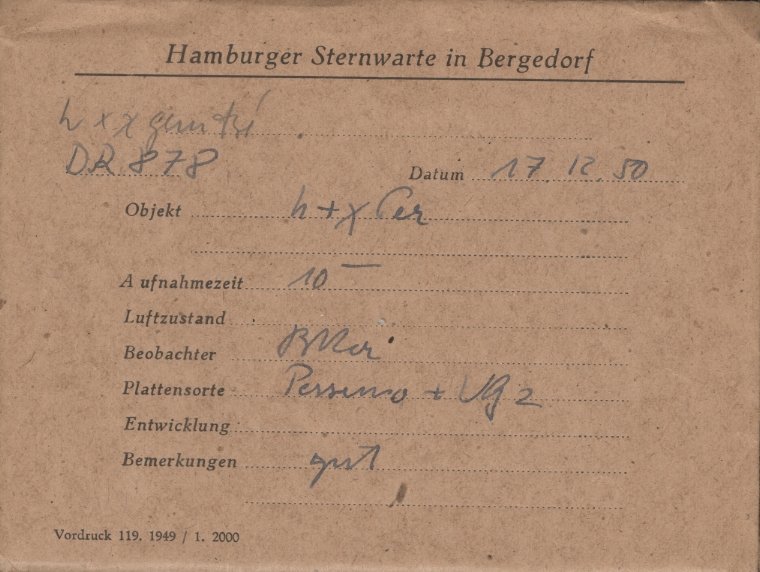 Hamburger Sternwarte in Bergedorf
h + χ
DR 878
Datum 17. 12. 50
Objekt h + χ Per
Aufnahmezeit 10
Luftzustand
Beobachter
Plattensorte + UG 2
Entwicklung
Bemerkungen gut
Vordruck 119. 1949 / 1. 2000